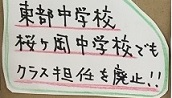 東部中学校
桜ヶ岡中学校でも
クラス担任を廃止!!